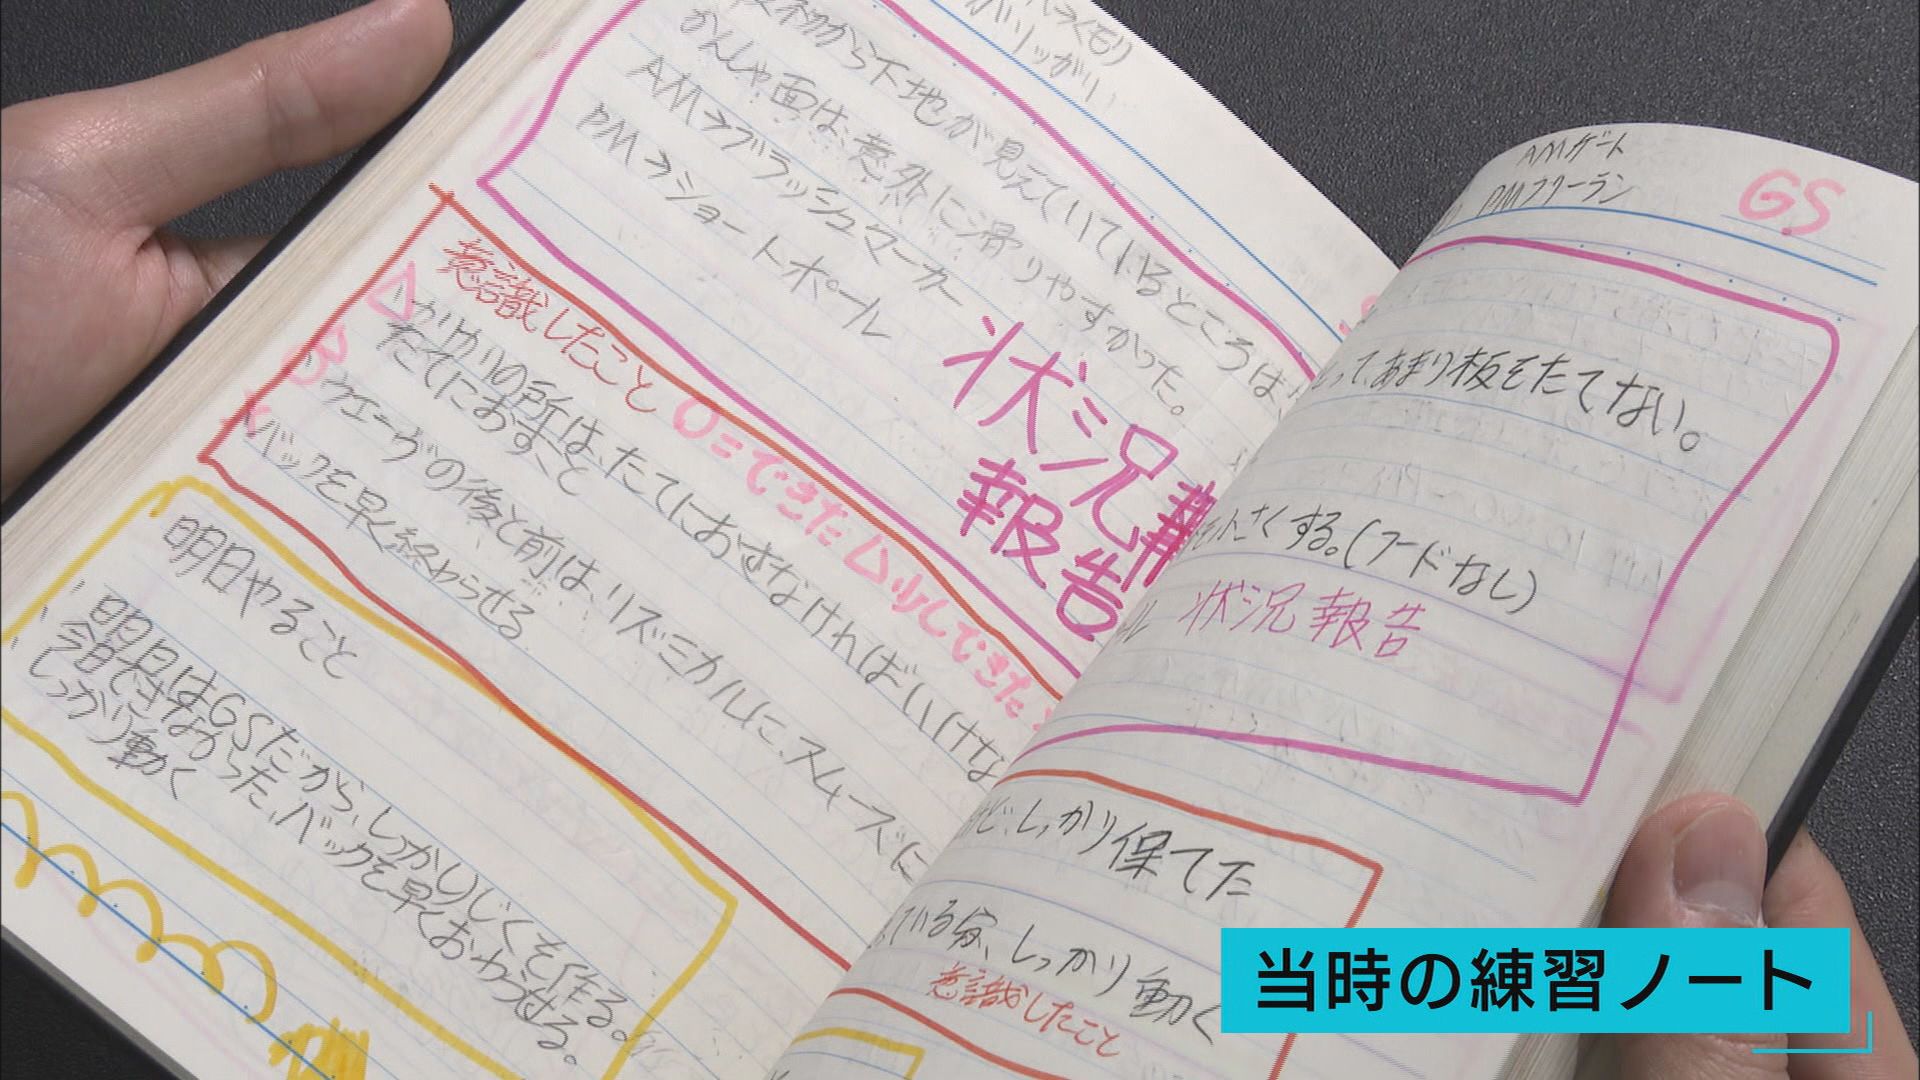 最初から下地が見えていているところは、
かんしゃ面は、意外に滑りやすかった。
AM→ブラッシュマーカー
PM→ショートポール
状況
報告
意識したこと ○=できた △少しできた
かりかりの所は、たてにおさなければいけな
たてにおすと
ウエーブの後と前は、リズミカルに、スムーズに
バックを早く終わらせる
明日やること
明日はGSだから、しっかりじくを作る。
今日できなかった、バックを早くおわらせる。
しっかり動く
AMゲート
PMフリーラン
GS
って、あまり板をたてない。
さくする。(フードなし)
状況報告
けど、しっかり保てた
ている分、しっかり動く
意識したこと
当時の練習ノート